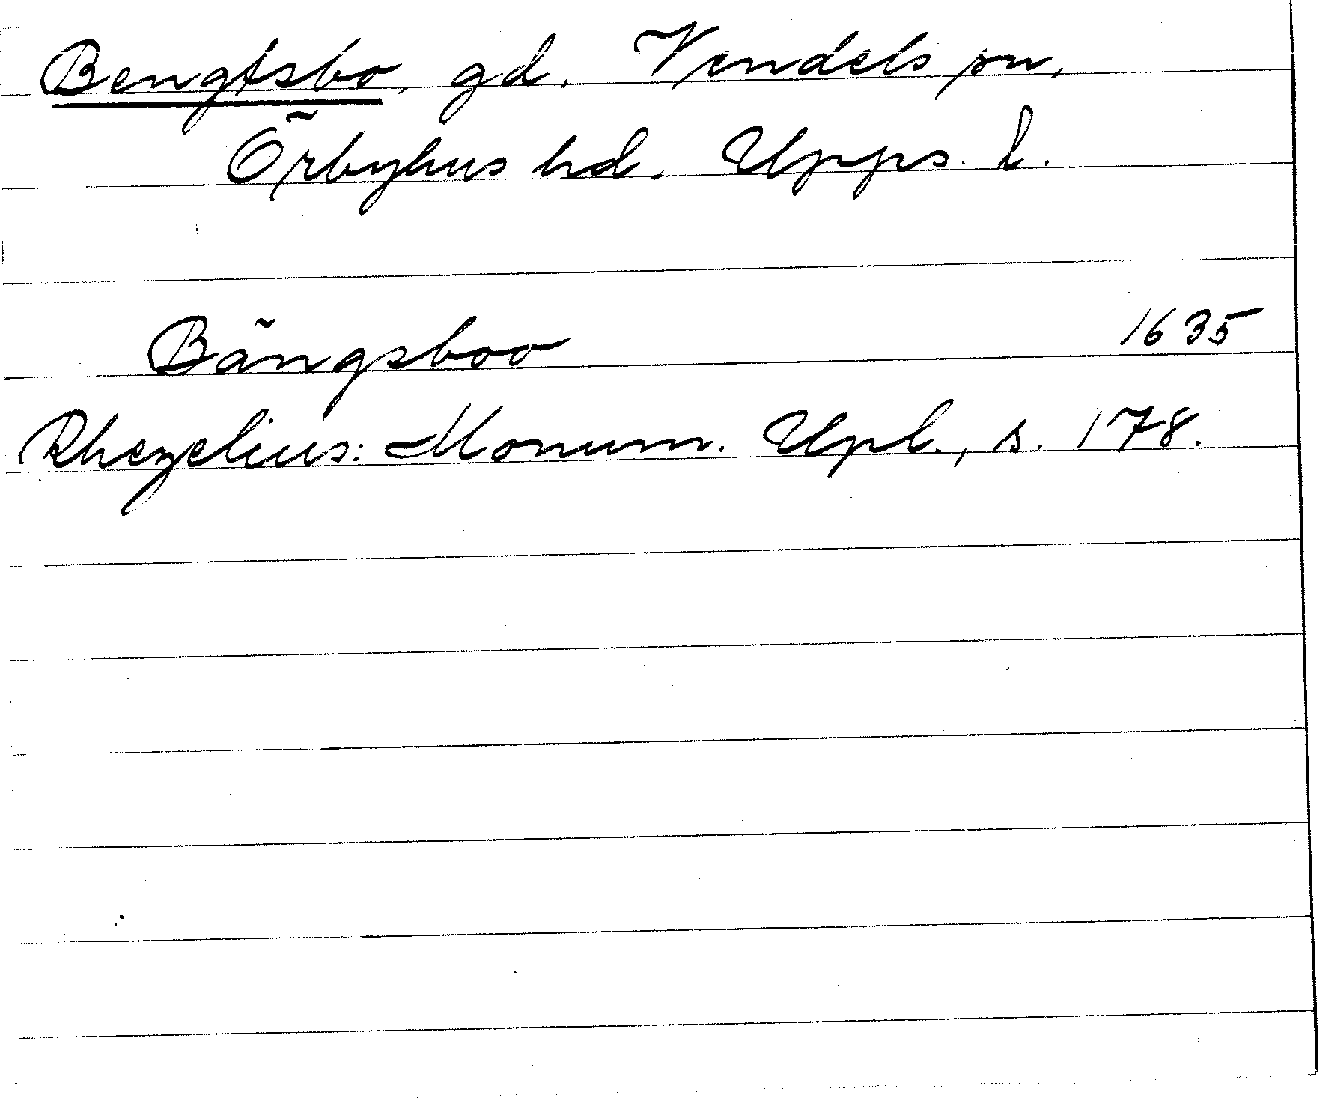 Bengtsbo, gd. Vendels sn,
Örbyhus hd. Upps. l.
Bängsboo 1635
Rhezelius: Monum. Upl., s. 178.